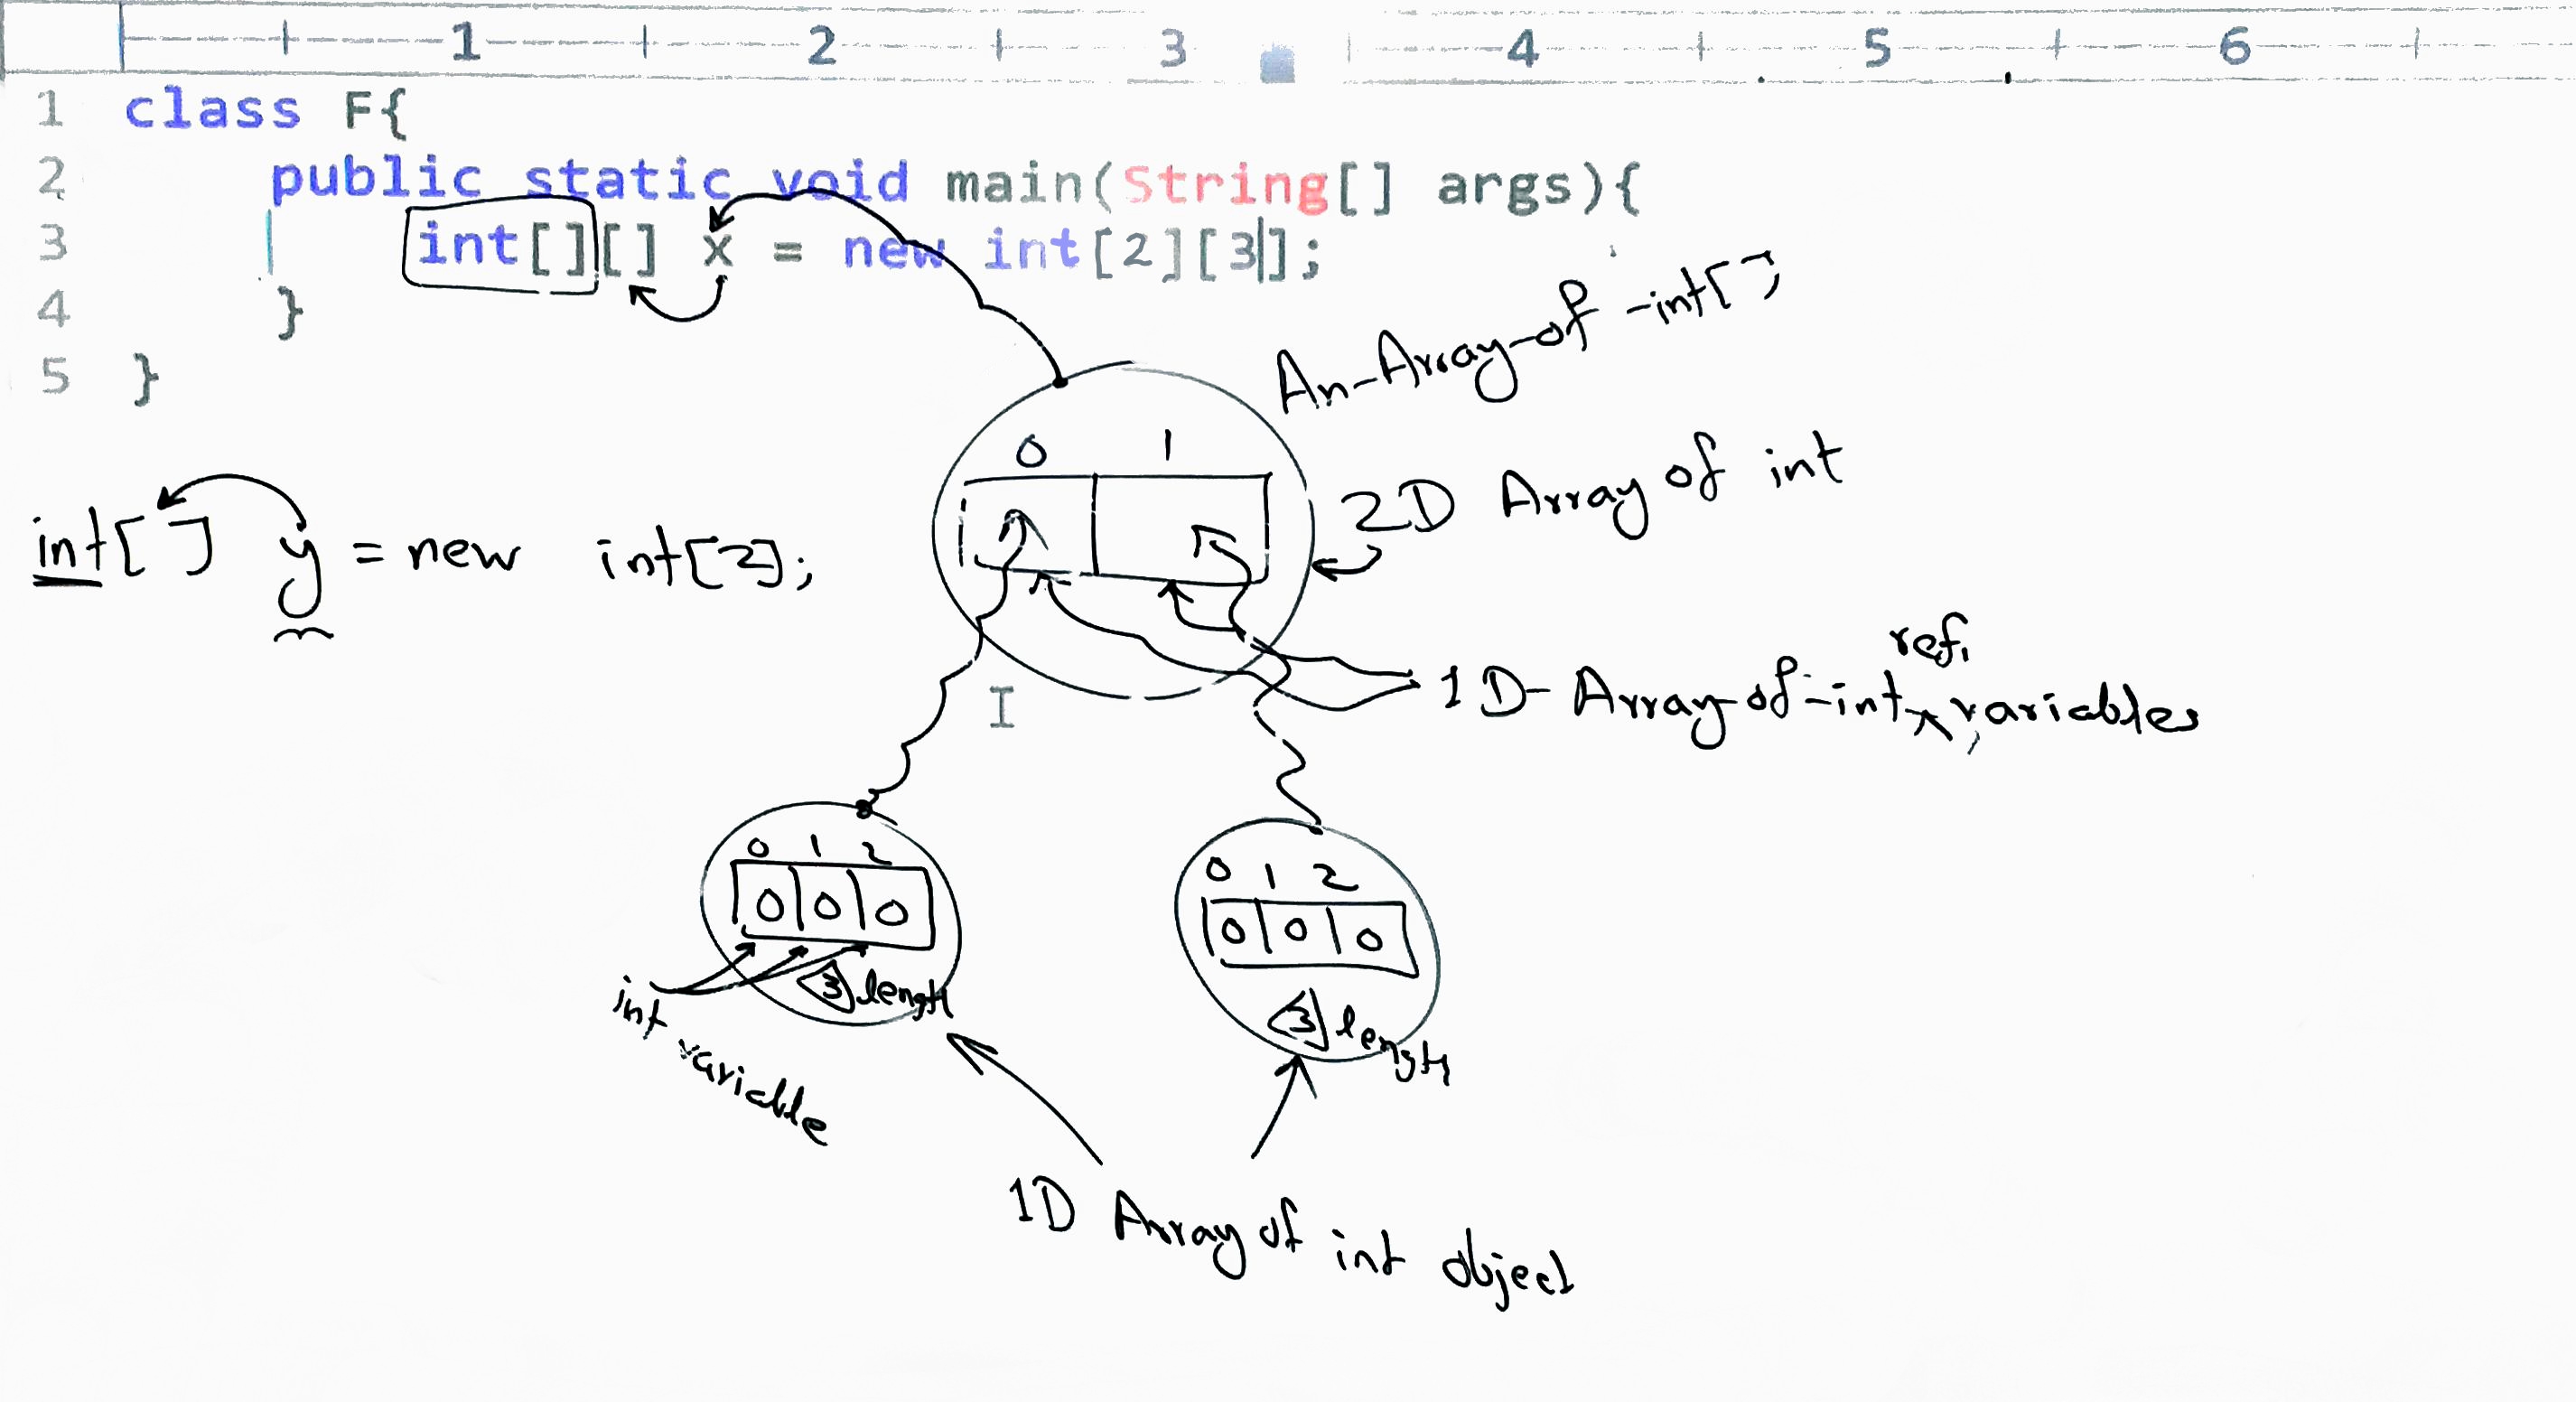 1 2 3 4 5 6
1 class F{
2 public static void main(String[] args){
3 int[][] x = new int[2][3];
4 }
5 }
An-Array-of-int[]
0 1
2D Array of int
int[] y = new int[2];
ref.
1D-Array-of-int variables
0 1 2
0 0 0
3 length
int variable
0 1 2
0 0 0
3 length
1D Array of int object